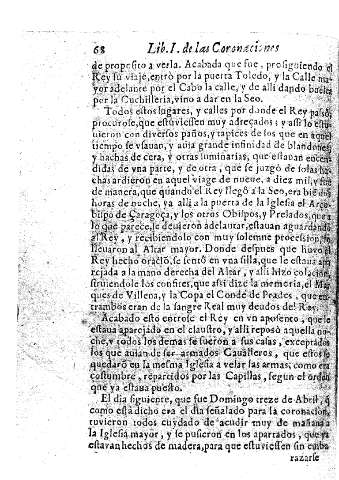 68 Lib. I. de las Coronaciones
de proposito a verla. Acabada que fue, prosiguiendo el
Rey su viaje, entrò por la puerta Toledo, y la Calle ma
yor adelante por el Cabo la calle, y de alli dando buelta
por la Cuchilleria, vino a dar en la Seo.
Todos estos lugares, y calles por donde el Rey passò,
procurose, que estuviessen muy adreçados; y assi lo estu
uieron con diversos paños, y tapices de los que en aquel
tiempo se vsauan, y auia grande infinidad de blandones,
y hachas de cera, y otras luminarias, que estauan encen
didas de vna parte, y de otra, que se juzgò de solas ha
chas ardieron en aquel viage de nueue, a diez mil, y fue
de manera, que quando el Rey llegò a la Seo, era bien dos
horas de noche, ya alli a la puerta de la Iglesia el Arço
bispo de Çaragoça, y los otros Obispos, y Prelados, que a
lo que parece, le deuieron adelantar, estauan aguardando
al Rey, y recibiendolo con muy solemne procession, lo
lleuaron al Altar mayor. Donde despues que huvo el
Rey hecho oraciõ, se sentò en vna silla, que le estaua apa
rejada a la mano derecha del Altar, y alli hizo colacion,
siruiendole los confites, que assi dize la memoria, el Mar
ques de Villena, y la Copa el Conde de Prades, que en
trambos eran de la sangre Real muy deudos del Rey.
Acabado esto entrose el Rey en vn aposento, que le
estaua aparejado en el claustro, y alli reposò aquella no
che, y todos los demas se fueron a sus casas, exceptados
los que auian de ser armados Caualleros, que estos se
quedarõ en la mesma Iglesia a velar las armas, como era
costumbre, repartidos por las Capillas, segun el orden
que ya estaua puesto.
El dia siguiente, que fue Domingo treze de Abril, q̃
como està dicho era el dia señalado para la coronacion,
tuvieron todos cuydado de acudir muy de mañana a
la Iglesia mayor, y se pusieron en los apartados, que ya
estavan hechos de madera, para que estuviessen sin emba
razarse